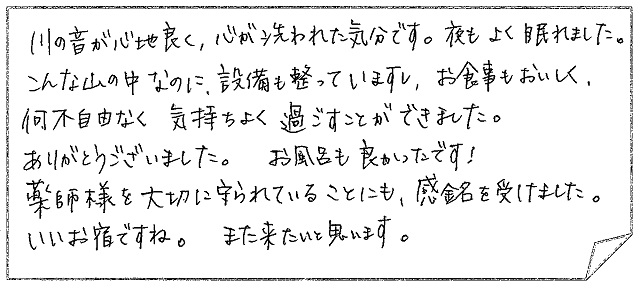 川の音が心地良く，心が洗われた気分です。夜もよく眠れました。
こんな山の中なのに、設備も整っていますし、お食事もおいしく、
何不自由なく 気持ちよく 過ごすことができました。
ありがとうございました。 お風呂も良かったです!
薬師様を大切に守られていることにも、感銘を受けました。
いいお宿ですね。 また来たいと思います。